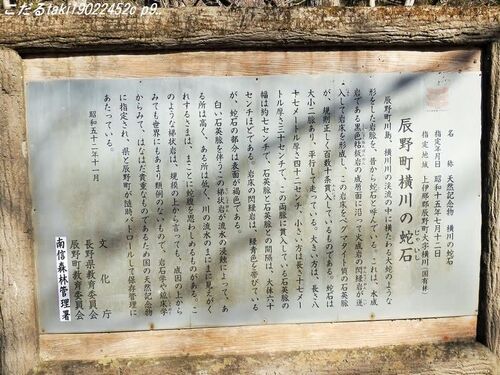 こだるtaki19022452c p9.
名　称　天然記念物　横川の蛇石
指定年月日　昭和十五年七月十二日
指定地域　上伊那郡辰野町大字横川（国有林）
辰野町横川の蛇石
じゃいし
辰野町川島、横川川の渓流の中に横たわる大蛇のような
形をした岩脈を、昔から蛇石と呼んでいる。これは、水成
岩である黒色粘板岩の成層面に沿って火成岩の閃緑岩が迸
入して岩床を形成し、この岩床をペグマタイト質の石英脈
が、規則正しく百数十条貫入しているものである。蛇石は
大小二脈あり、平行して走っている。大きい方は、長さ八
十七メートル厚さ四十二センチ、小さい方は長さ十七メー
トル厚さ三十センチで、この両脈に貫入している石英脈の
幅は約七センチで、石英脈と石英脈との間隔は、大体六十
センチほどである。岩床の閃緑岩は、緑青色を帯びている
が、蛇石の部分は表面が褐色である。
白い石英脈を伴うこの梯状岩が流水の浸蝕によって、あ
る所は高く、ある所は低く、川の流水のまにまに見えがく
れするさまは、まことに蛇腹を思わしめるものがある。こ
のような梯状岩は、規模の上から言っても、成因の上から
みても世界にもあまり類例のないもので、岩石学や鉱床学
からみて、はなはだ貴重なものであるため国の天然記念物
に指定され、県と辰野町が随時パトロールして保存管理に
あたっている。
昭和五十二年十一月
文　化　庁
長野県教育委員会
辰野町教育委員会
南信森林管理署